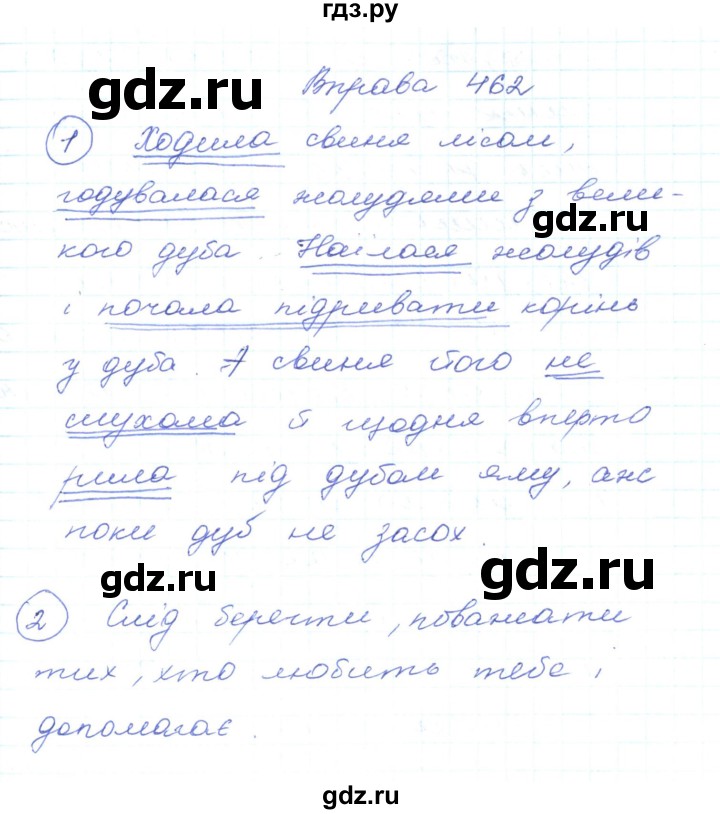 гдз.ру
gdz.ru
Вправа 462
1 Ходила свиня лісом,
годувалася жолудями з вели-
gdz.ru
кого дуба. Наїлася жолудів
і почала підривати корінь
у дуба. А свиня його не
слухала й щодня вперто
рила під дубом яму, аж
поки дуб не засох.
gdz.ru
gdz.ru
2 Слід берегти, поважати
тих, хто любить тебе і
допомагає.
gdz.ru